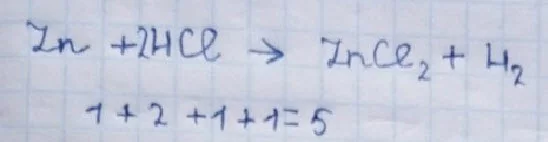 Zn + 2HCl → ZnCl₂ + H₂
1 + 2 + 1 + 1 = 5